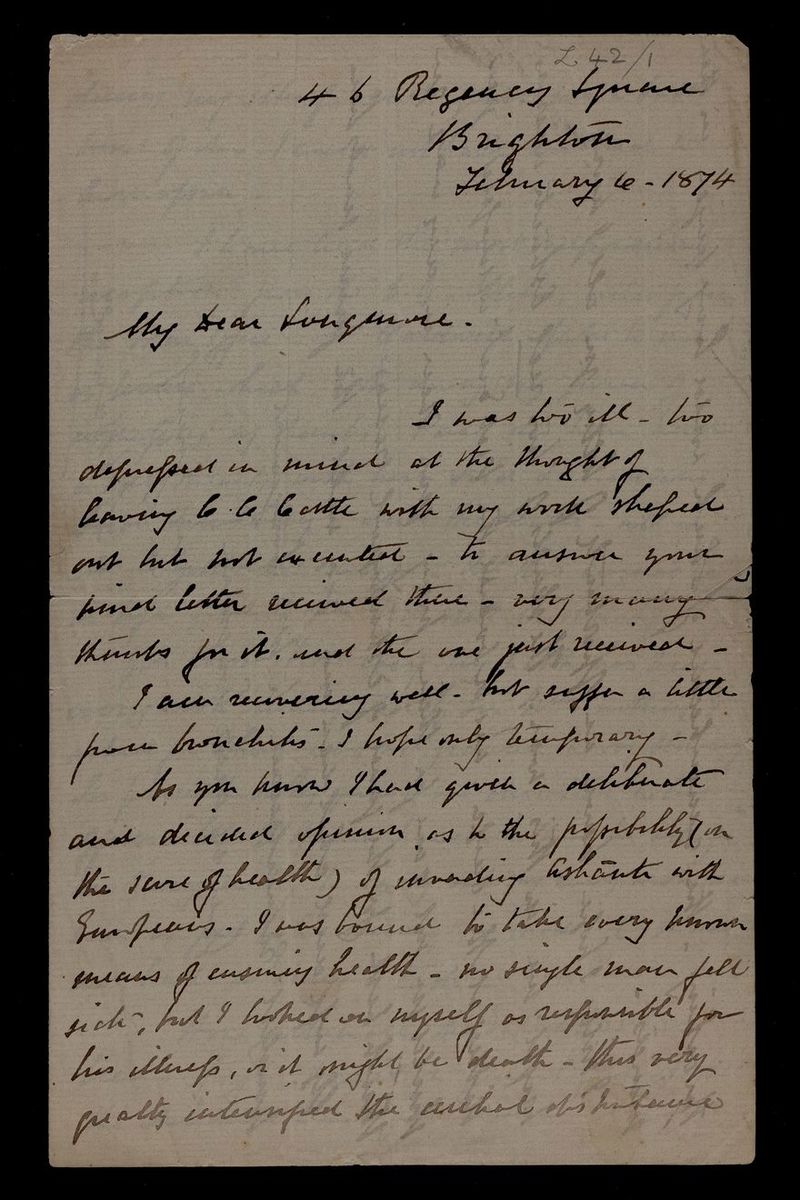 L 42/1
46 Regency Square
Brighton
February 6 - 1874
My Dear Longmore.
I was too ill - too
depressed in mind at the thought of
leaving C. C. Castle with my work shaped
out but not executed - to answer your
kind letter received there - very many
thanks for it, and the one just received -
I am recovering well - but suffer a little
from bronchitis - I hope only temporary -
As you know I had given a deliberate
and decided opinion as to the possibility (on
the score of health) of invading Ashante with
Europeans - I was bound to take every known
means of ensuring health - no single man fell
sick, but I looked on myself as responsible for
his illness, or it might be death - this very
greatly intensified the